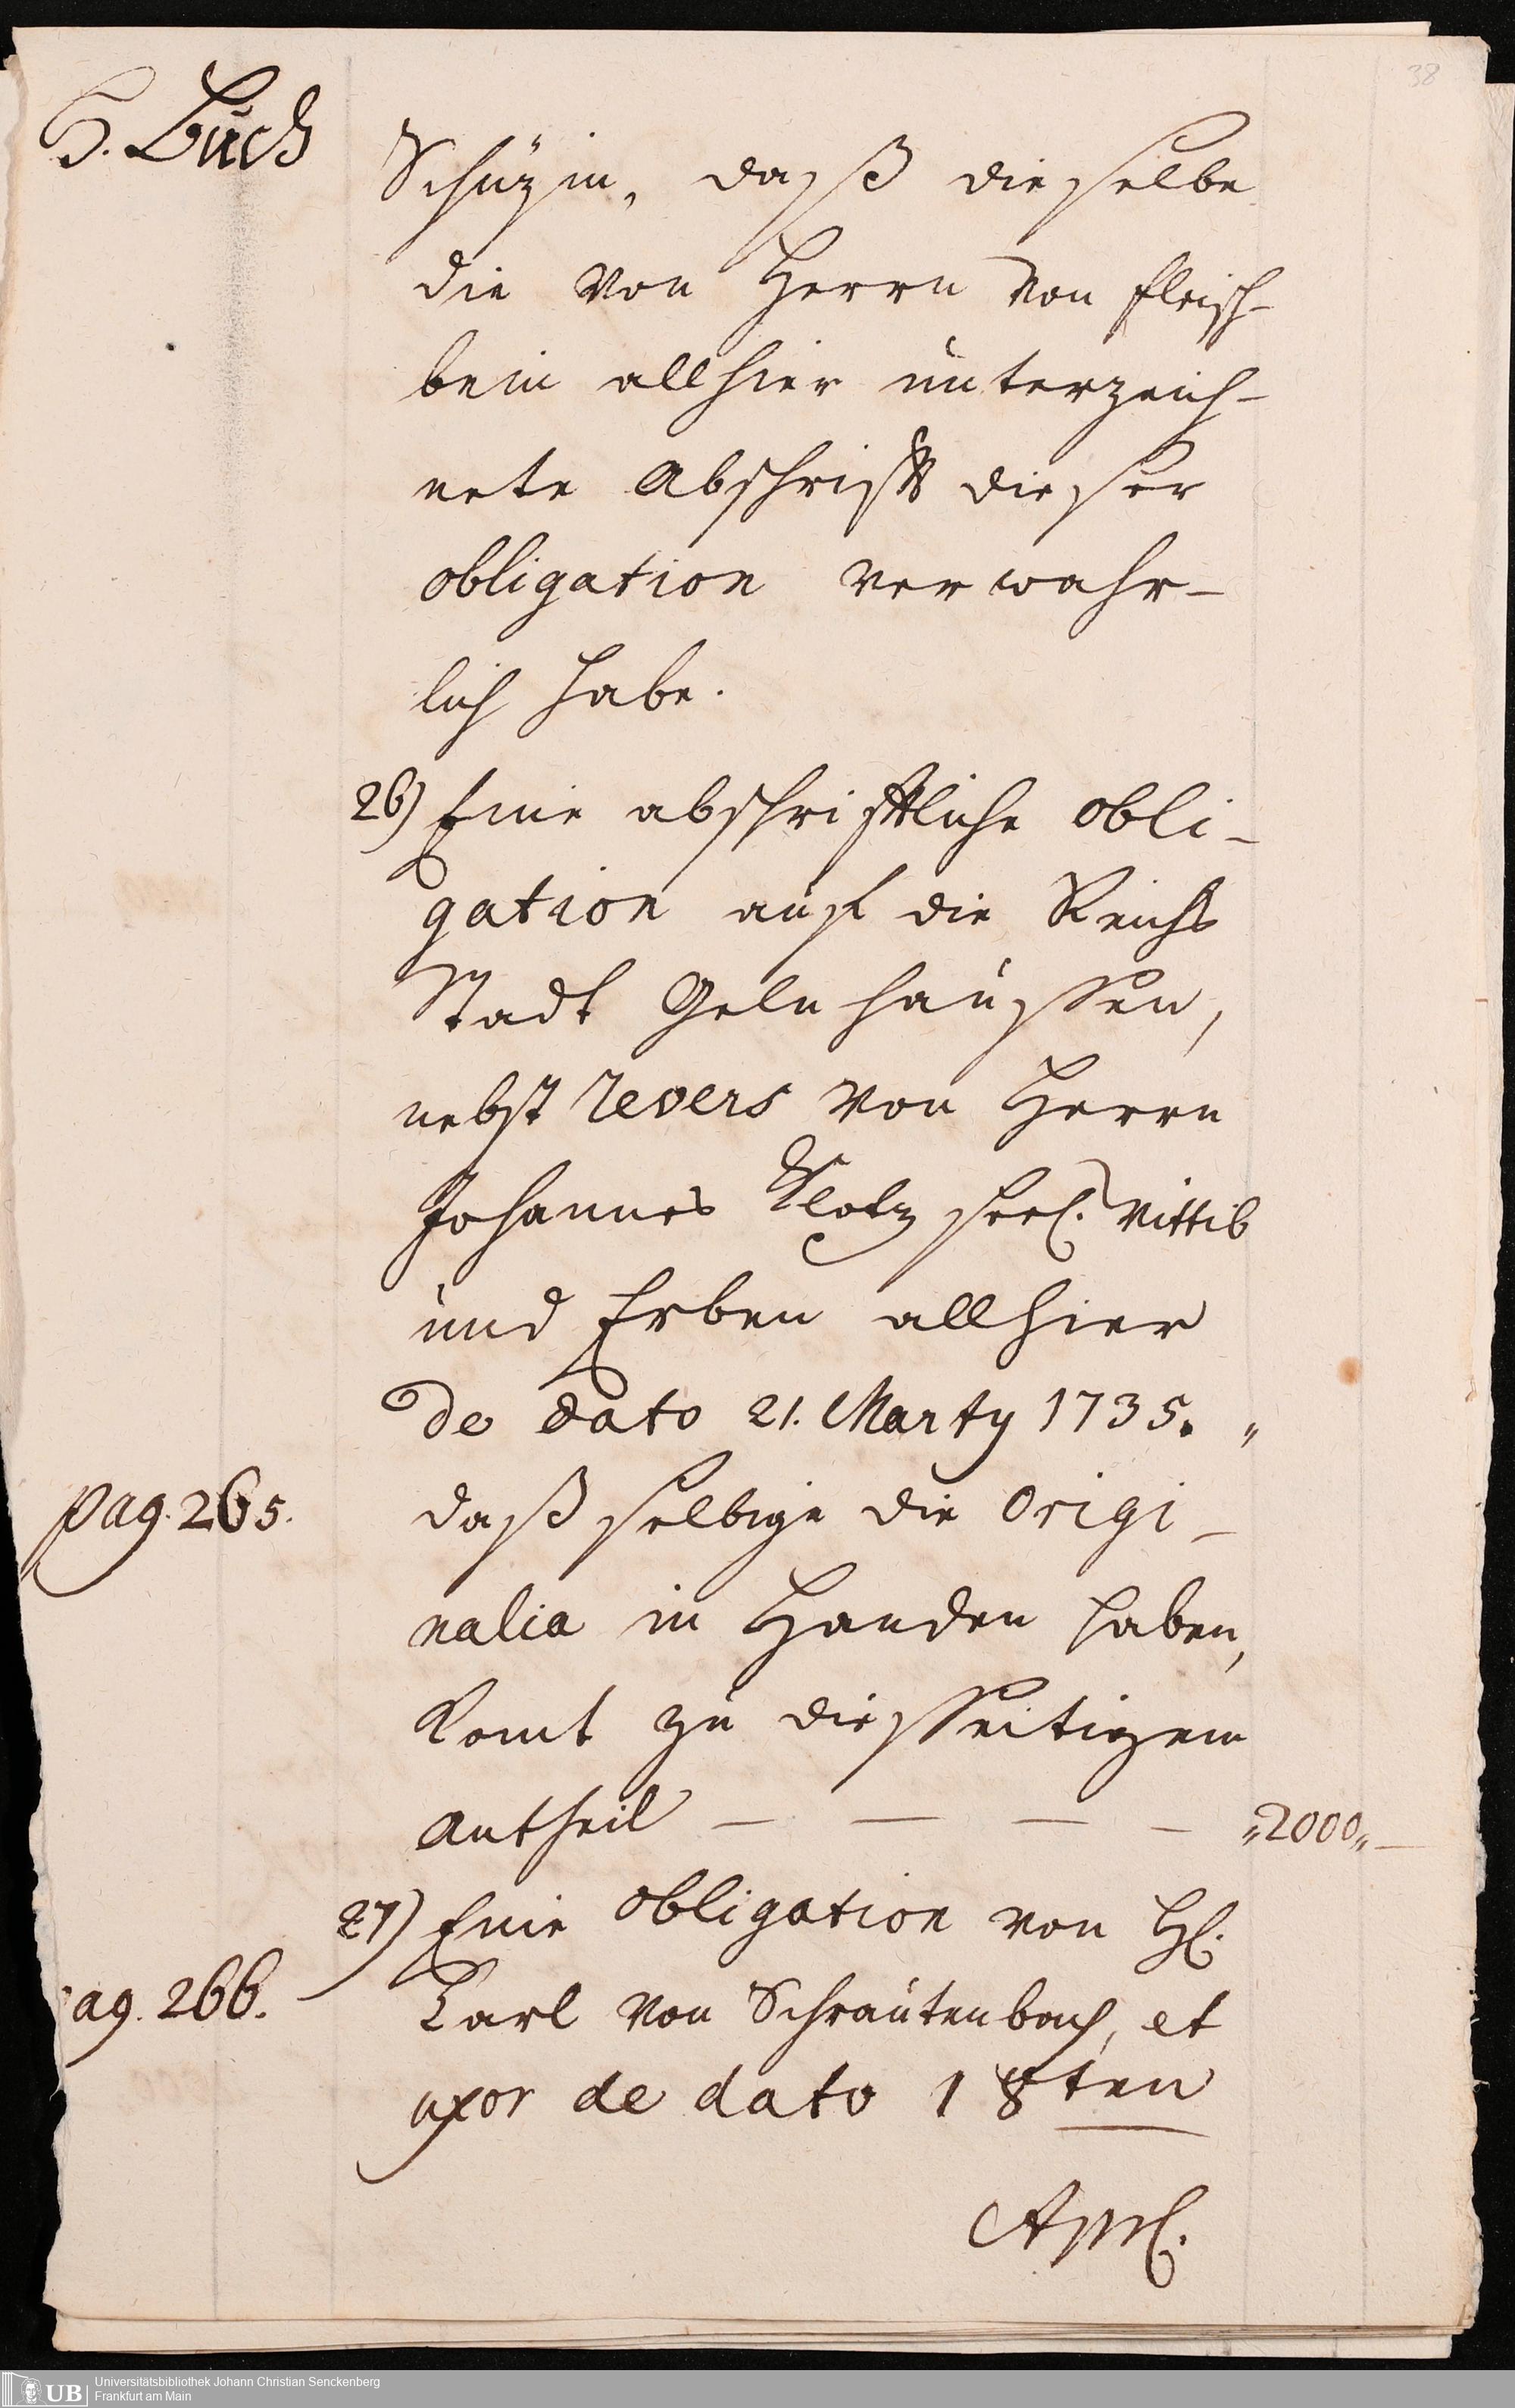 38
H. Buch
Schüzin, daß dieselbe
die von Herrn von Fleisch-
bein allhier unterzeich-
nete Abschrifft dieser
obligation verwahr-
lich habe.
26) Eine abschrifftliche obli-
gation auf die Reichs
Stadt Gelnhaußen,
nebst revers von Herrn
Johannes Klotz seel. Wittib
und Erben allhier
de dato 21. Marty 1735. „
pag. 265.
daß selbige die Origi-
nalia in Handen haben,
Komt zu diesseitigem
Antheil — — — — „2000„ —
27) Eine obligation von H.
pag. 266.
Carl von Schrautenbach, et
uxor de dato 18ten
Apr.
UB Universitätsbibliothek Johann Christian Senckenberg
Frankfurt am Main